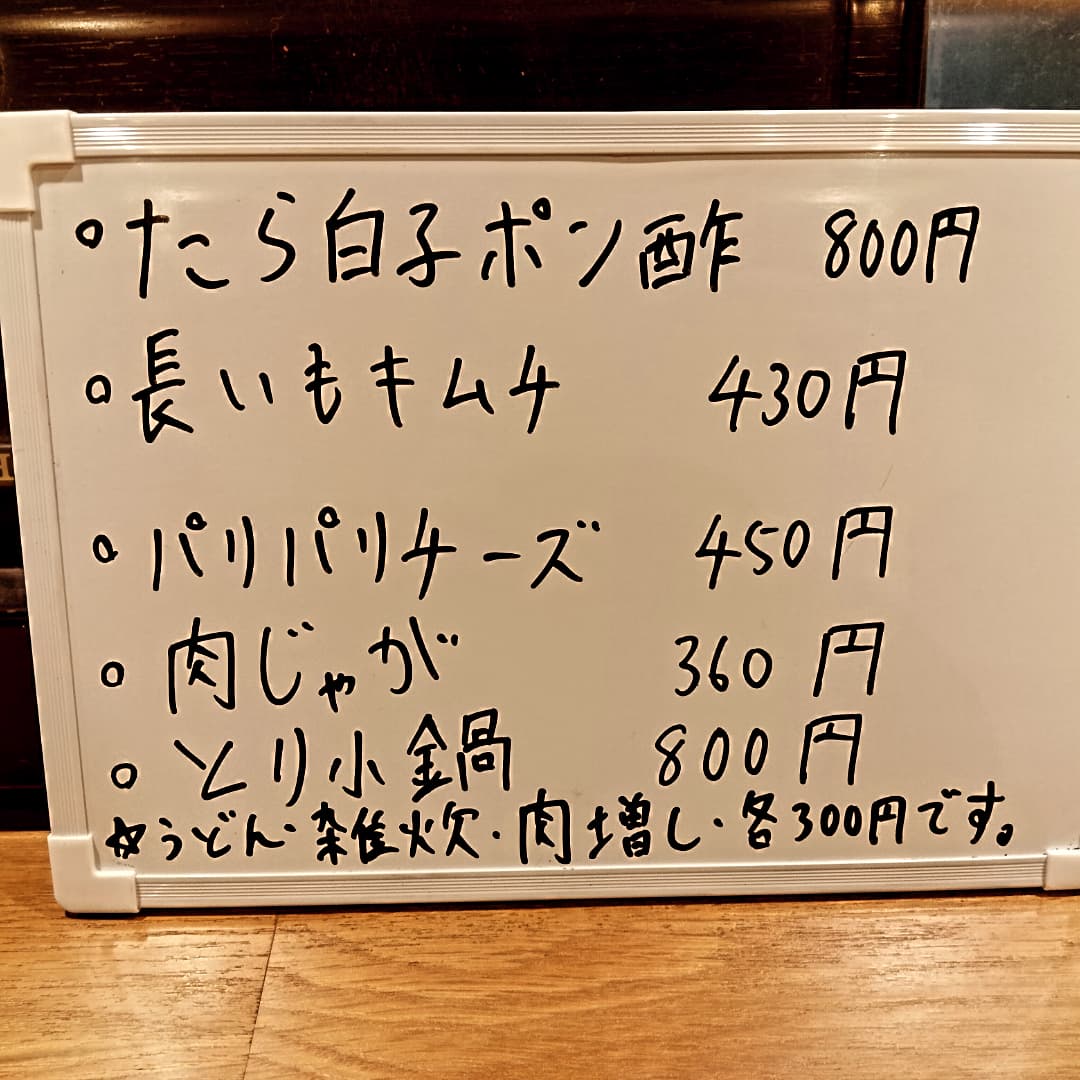 ○たら白子ポン酢 800円
○長いもキムチ 430円
○パリパリチーズ 450円
○肉じゃが 360円
○とり小鍋 800円
☆うどん・雑炊・肉増し・各300円です。